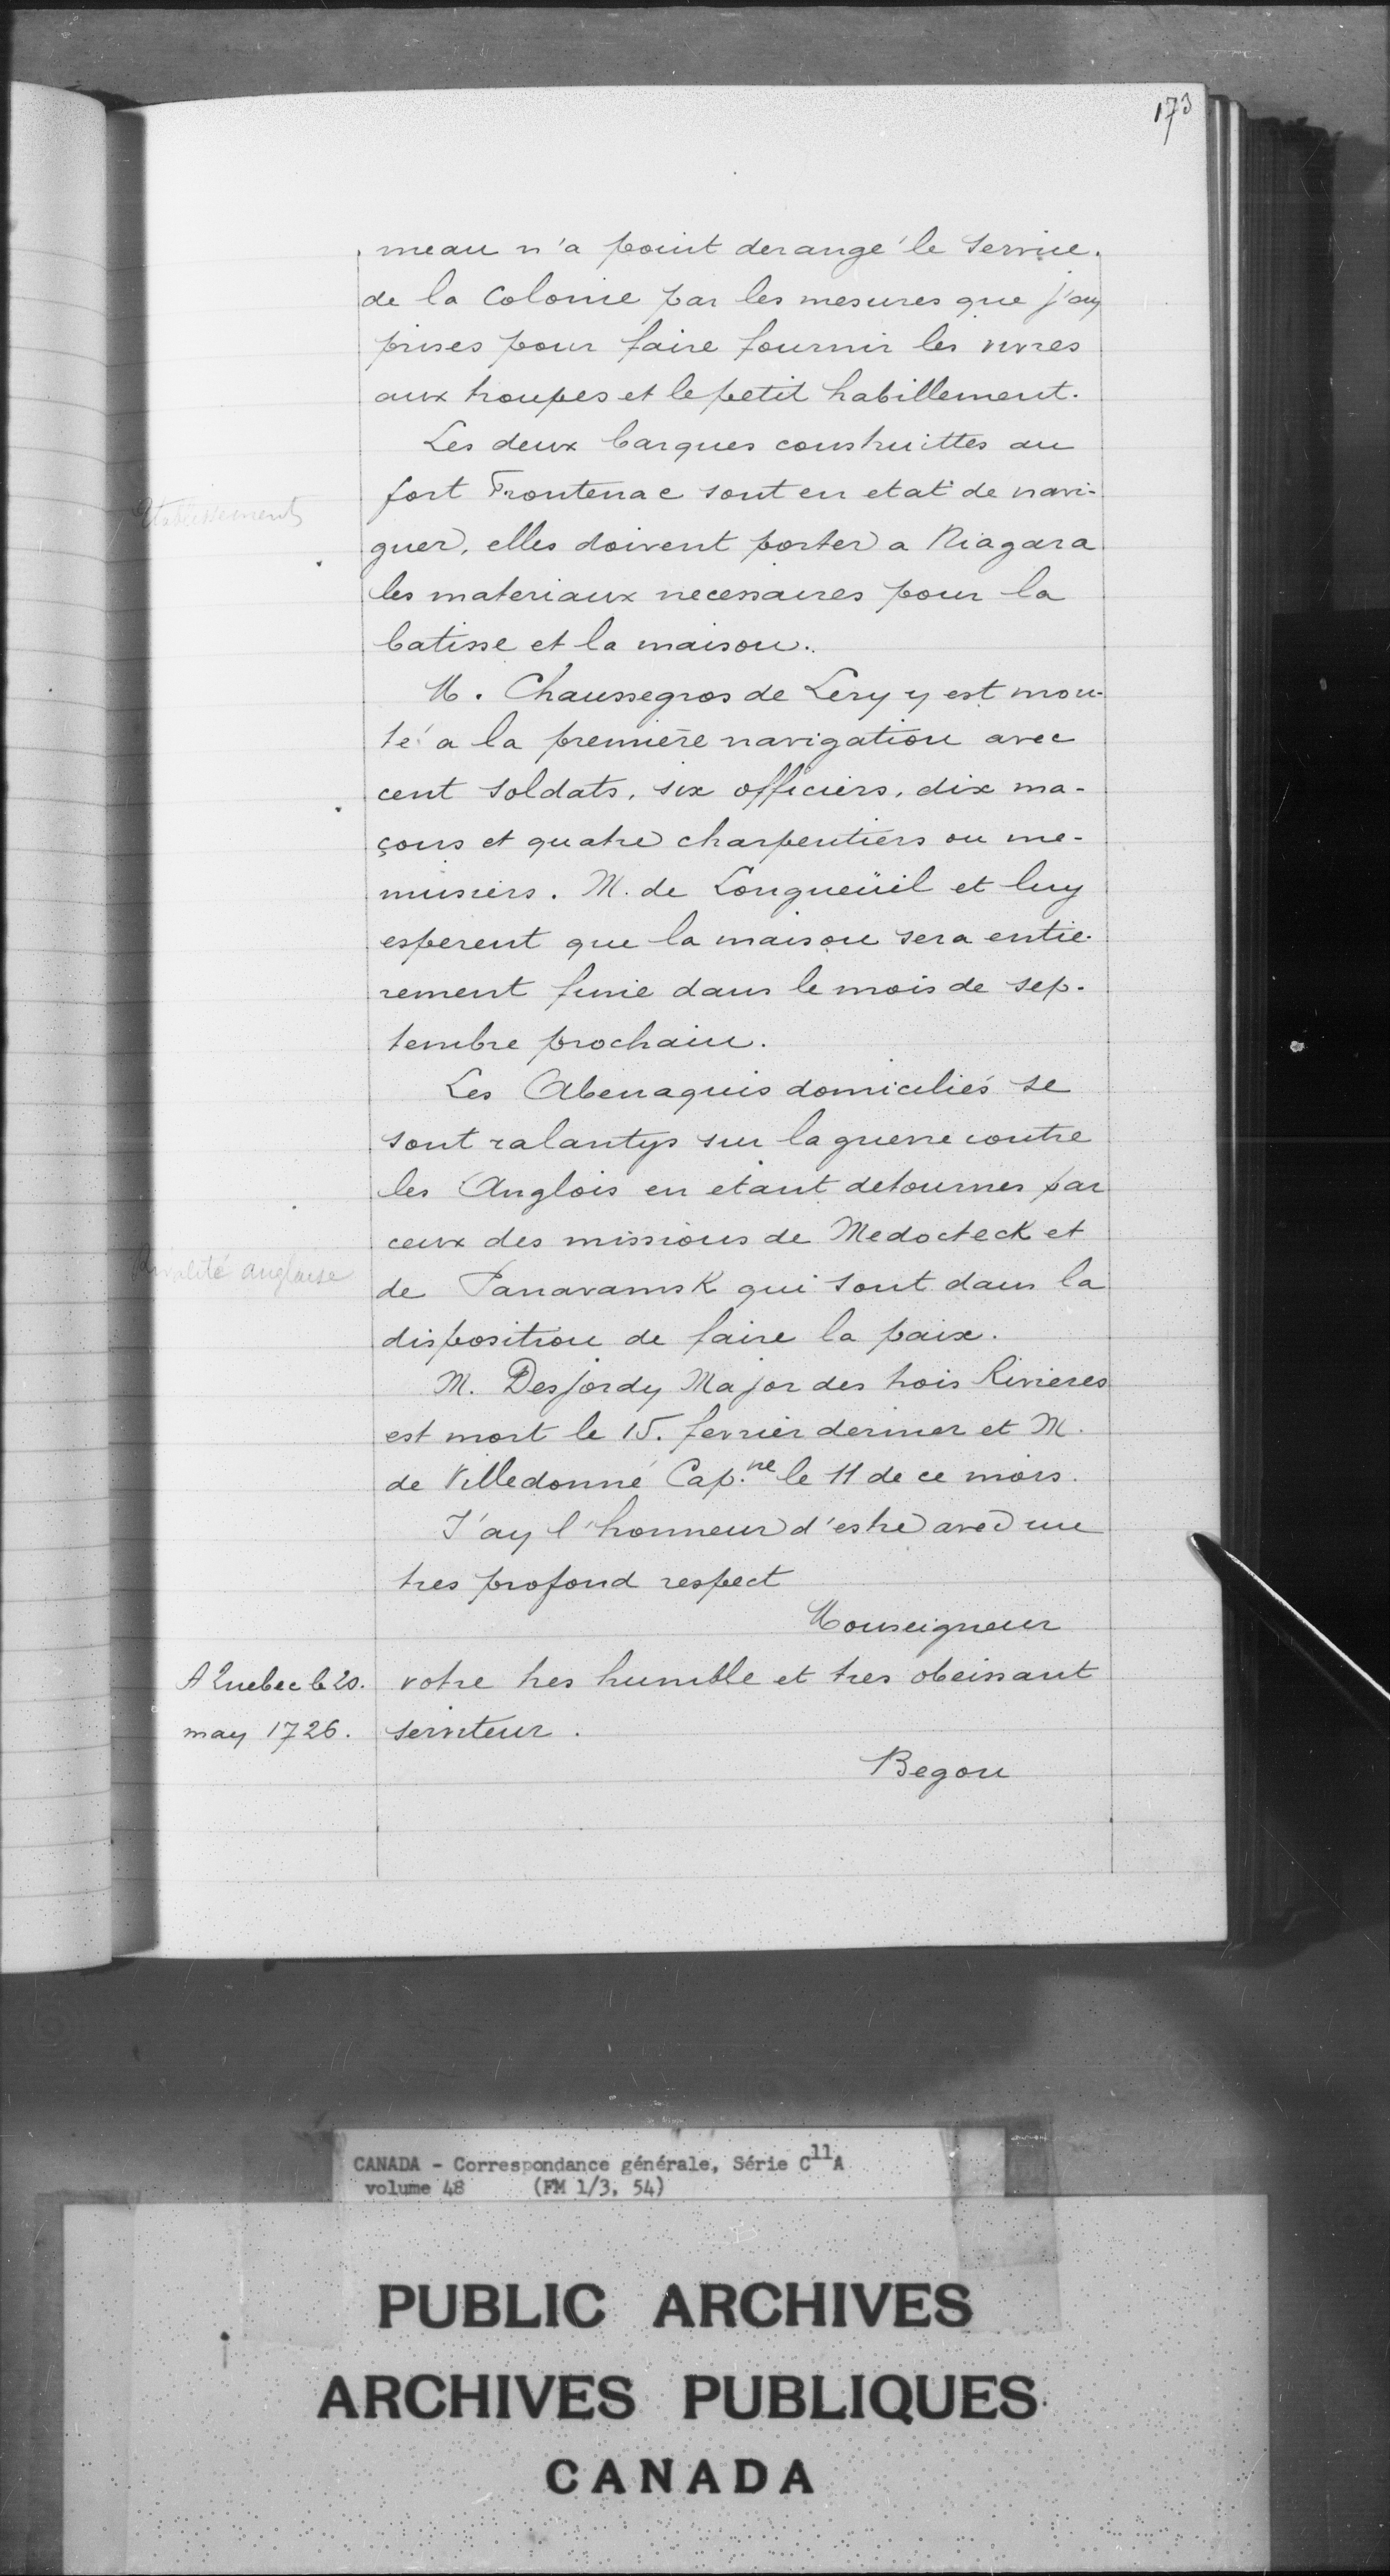 173
meau n'a point derangé le service.
de la Colonie par les mesures que j'ay
prises pour faire fournir les vivres
aux troupes et le petit habillement.
Les deux barques construittes au
fort Frontenac sont en etat de navi-
Etablissements
guer, elles doivent porter a Niagara
les materiaux necessaires pour la
batisse et la maison.
M. Chaussegros de Lery y est mon-
té a la premiere navigation avec
cent soldats, six officiers, dix ma-
çons et quatre charpentiers ou me-
nuisiers. M. de Longueüil et luy
esperent que la maison sera entie-
rement finie dans le mois de sep-
tembre prochain.
Les Abenaquis domiciliés se
sont ralantys sur la guerre contre
les Anglois en etant detournes par
ceux des missions de Medocteck et
Rivalité anglaise
de Panavamsk qui sont dans la
disposition de faire la paix.
M. Desjordy Major des trois Rivieres
est mort le 15. fevrier dernier et M.
de Villedonné Cap.ne le 11 de ce mois.
J'ay l'honneur d'estre avec un
tres profond respect
Monseigneur
A Quebec le 20. votre tres humble et tres obeissant
may 1726. serviteur.
Begon
CANADA - Correspondance générale, Série C11A
volume 48 (FM 1/3, 54)
PUBLIC ARCHIVES
ARCHIVES PUBLIQUES
CANADA